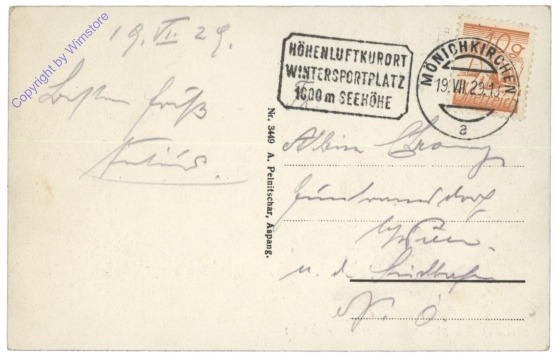 Copyright by Wimstore
19. VII. 29.
Besten Gruß
HÖHENLUFTKURORT
WINTERSPORTPLATZ
1000 m SEEHÖHE
10g
MÖNICHKIRCHEN
19. VII. 29.
a
Nr. 3449 A. Pelnitschar, Aspang.
Guntramsdorf
b/Wien
a. d. Südbahn
N. Ö.